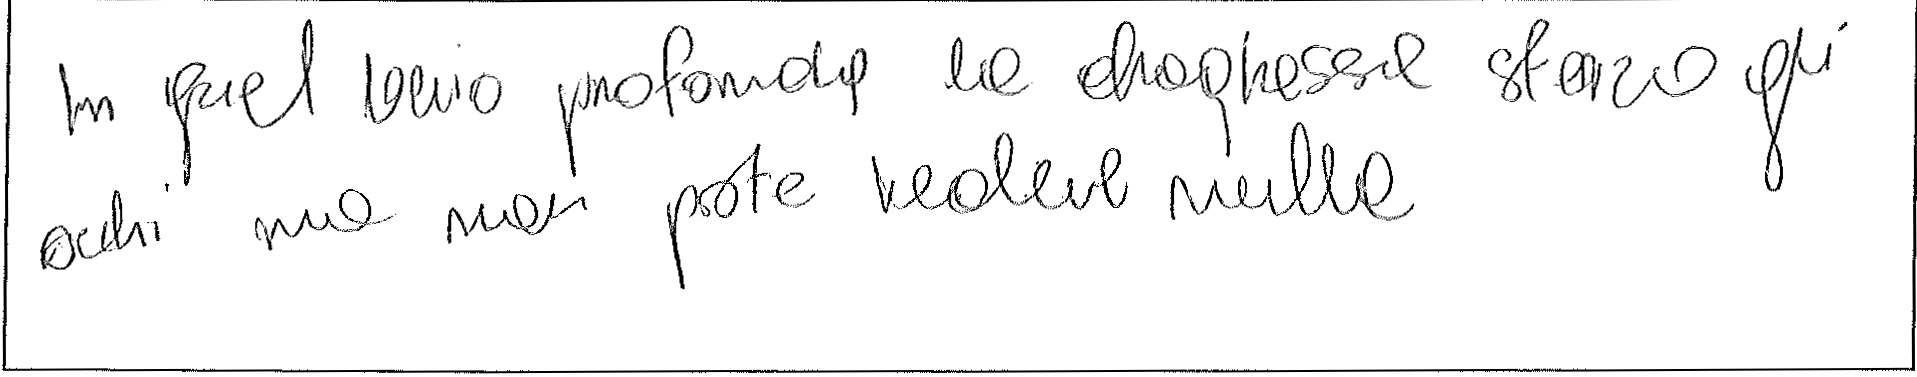 In quel buio profondo la draghessa sforzo gli
occhi ma non pote vedere nulla